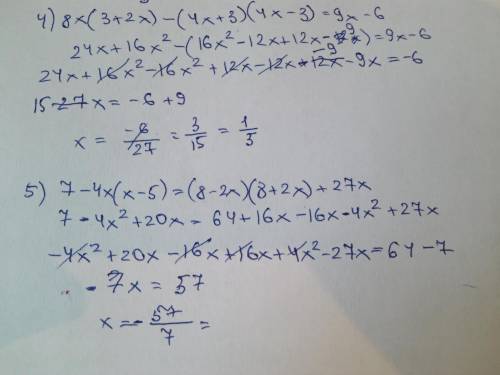 4) 8x(3+2x)-(4x+3)(4x-3)=9x-6
24x+16x²-(16x²-12x+12x-9)=9x-6
24x+16x²-16x²+12x-12x-9x=-6
15-27x=-6+9
x = -6/27 = 3/15 = 1/5
5) 7-4x(x-5)=(8-2x)(8+2x)+27x
7-4x²+20x=64+16x-16x-4x²+27x
-4x²+20x-16x+16x+4x²-27x=64-7
-7x=57
x=-57/7=